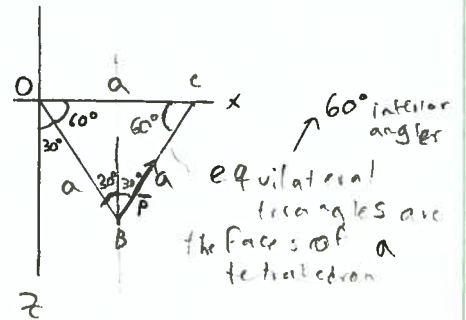 O a C x
60° 60°
30°
a 30° 30° a
P
B
z
60° interior
angles
equilateral
triangles are
the faces of a
tetrahedron